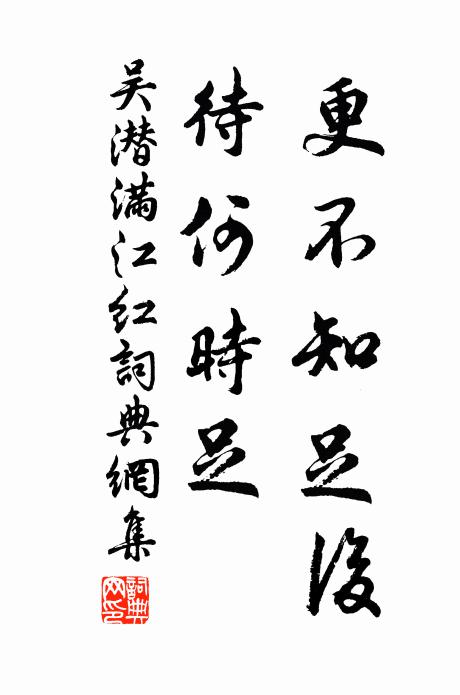 更不知足後
待何時足
吴潜满江红詞典網集
詞典网印